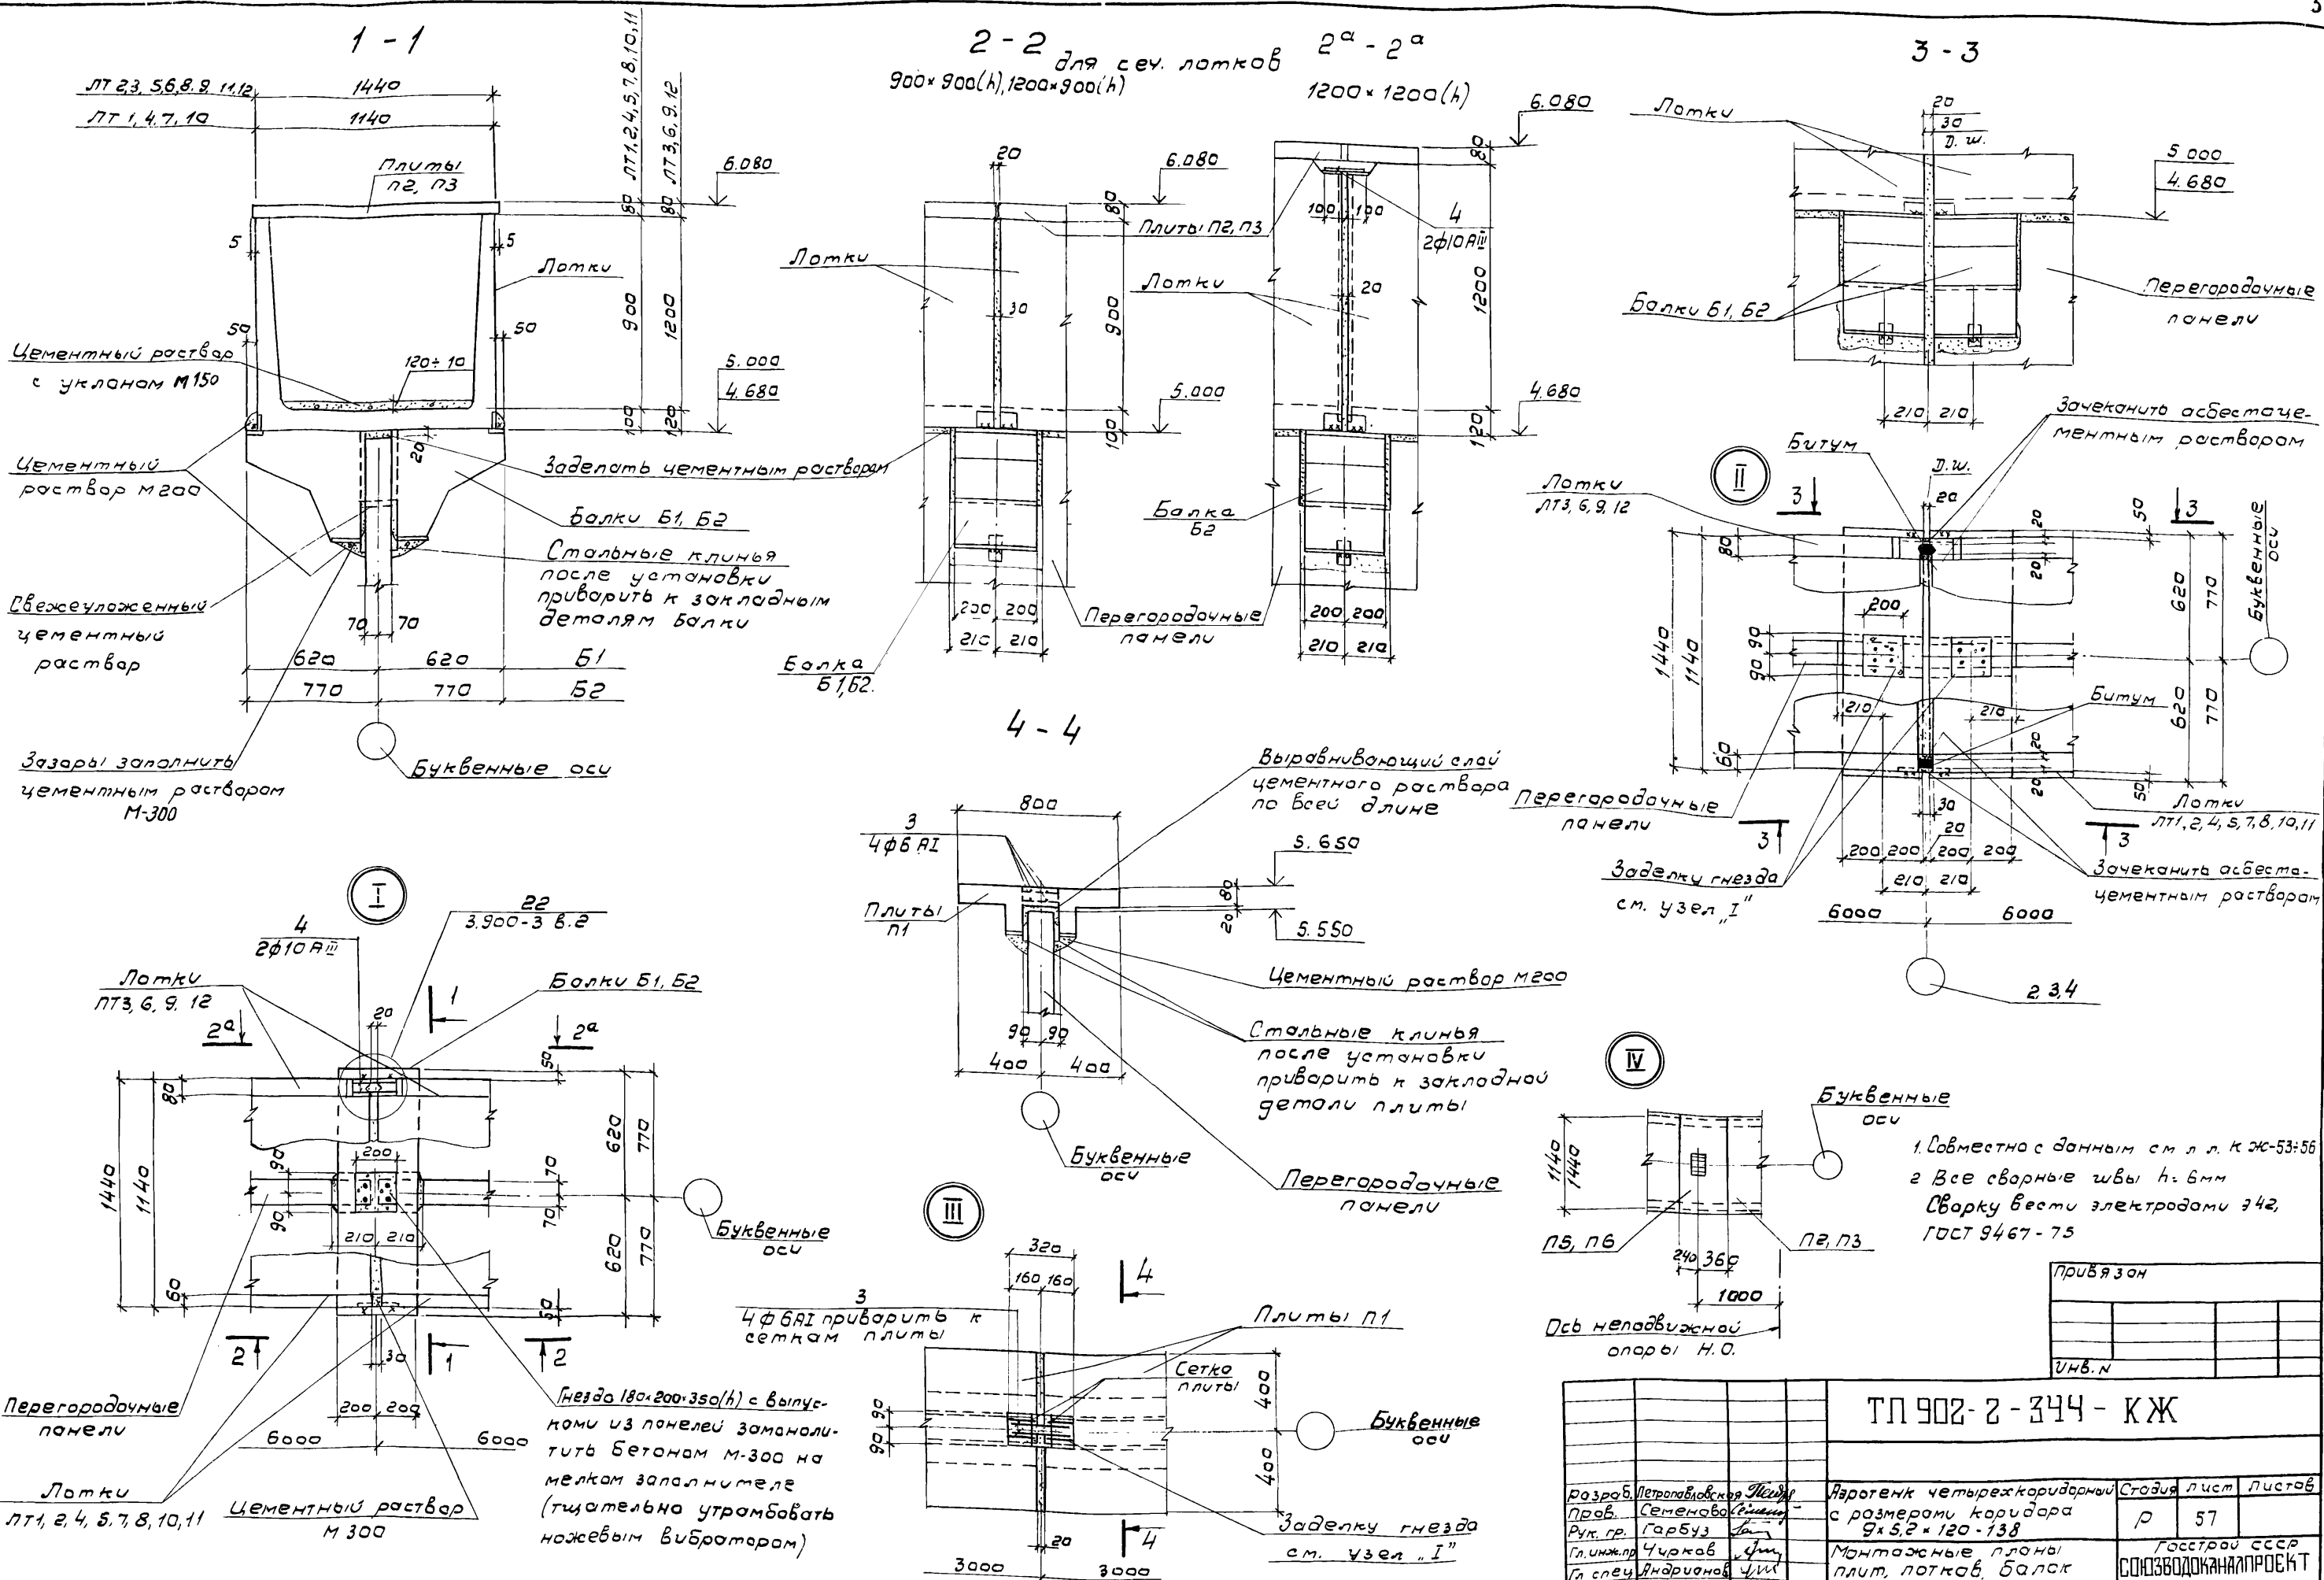 3
1 - 1
ЛТ 2,3, 5,6,8.9. 11,12
1440
ЛТ 1, 4, 7, 10
1140
Плиты
П2, П3
80 ЛТ1,2,4,5,7,8,10,11
80 ЛТ 3,6,9,12
6.080
5
5
Лотки
900
1200
50
50
Цементный раствор
с уклоном М150
120÷10
5.000
4.680
100
120
20
Цементный
раствор М200
Заделать цементным раствором
Балки Б1, Б2
Стальные клинья
после установки
приварить к закладным
деталям балки
Свежеуложенный
цементный
раствор
70
70
620
620
Б1
770
770
Б2
Зазоры заполнить
цементным раствором
М-300
Буквенные оси
2 - 2
для сеч. лотков
2а - 2а
900×900(h), 1200×900(h)
1200×1200(h)
20
6.080
80
6.080
80
Плиты П2, П3
100
100
4
2ф10АIII
Лотки
Лотки
30
20
900
1200
5.000
4.680
100
120
Балка
Б2
200
200
210
210
200
200
210
210
Перегородочные
панели
Балка
Б1,Б2.
3 - 3
Лотки
20
30
Д. ш.
5 000
4.680
Балки Б1, Б2
Перегородочные
панели
210
210
II
Битум
Зачеканить асбестоце-
ментным раствором
Лотки
ЛТ3, 6, 9, 12
3
Д.ш.
20
3
Буквенные
оси
50
20
80
20
200
620
770
1440
1140
90
90
210
210
620
770
Битум
60
20
20
50
30
20
Перегородочные
панели
3
3
Лотки
ЛТ1, 2, 4, 5, 7, 8, 10, 11
200
200
200
200
Заделку гнезда
см. узел „I"
210
210
Зачеканить асбесто-
цементным раствором
6000
6000
2, 3, 4
4 - 4
Выравнивающий слой
цементного раствора
по всей длине
800
3
4ф6 АI
5.650
80
20
5.550
Плиты
П1
Цементный раствор М200
Стальные клинья
после установки
приварить к закладной
детали плиты
90
90
400
400
Буквенные
оси
Перегородочные
панели
I
4
2ф10 АIII
22
3.900-3 в.2
Лотки
ЛТ3, 6, 9, 12
Балки Б1, Б2
20
1
2а
2а
50
80
1440
1140
200
90
90
70
70
620
770
620
770
210
210
Буквенные
оси
60
50
2
30
1
2
Перегородочные
панели
200
200
6000
6000
Лотки
ЛТ1, 2, 4, 5, 7, 8, 10, 11
Цементный раствор
М 300
Гнездо 180×200×350(h) с выпус-
ками из панелей замоноли-
тить бетоном М-300 на
мелком заполнителе
(тщательно утрамбовать
ножевым вибратором)
III
320
160
160
4
3
4ф6АI приварить к
сеткам плиты
Плиты П1
Сетка
плиты
90
90
400
400
Буквенные
оси
20
4
Заделку гнезда
см. узел „I"
3000
3000
IV
Буквенные
оси
1140
1440
П5, П6
П2, П3
240
360
1000
Ось неподвижной
опоры Н.О.
1. Совместно с данным см л л. КЖ-53÷56
2 Все сварные швы h= 6мм
Сварку вести электродами Э42,
ГОСТ 9467-75
Привязан
Инв.N
ТП 902-2-344-КЖ
Разраб. Петропавловская
Пров. Семенова
Рук. гр. Гарбуз
Гл.инж.пр Чирков
Гл спец Андрианов
Аэротенк четырехкоридорный
с размерами коридора
9×5,2×120-138
Стадия
Лист
Листов
Р
57
Монтажные планы
плит, лотков, балок
Госстрой СССР
СОЮЗВОДОКАНАЛПРОЕКТ